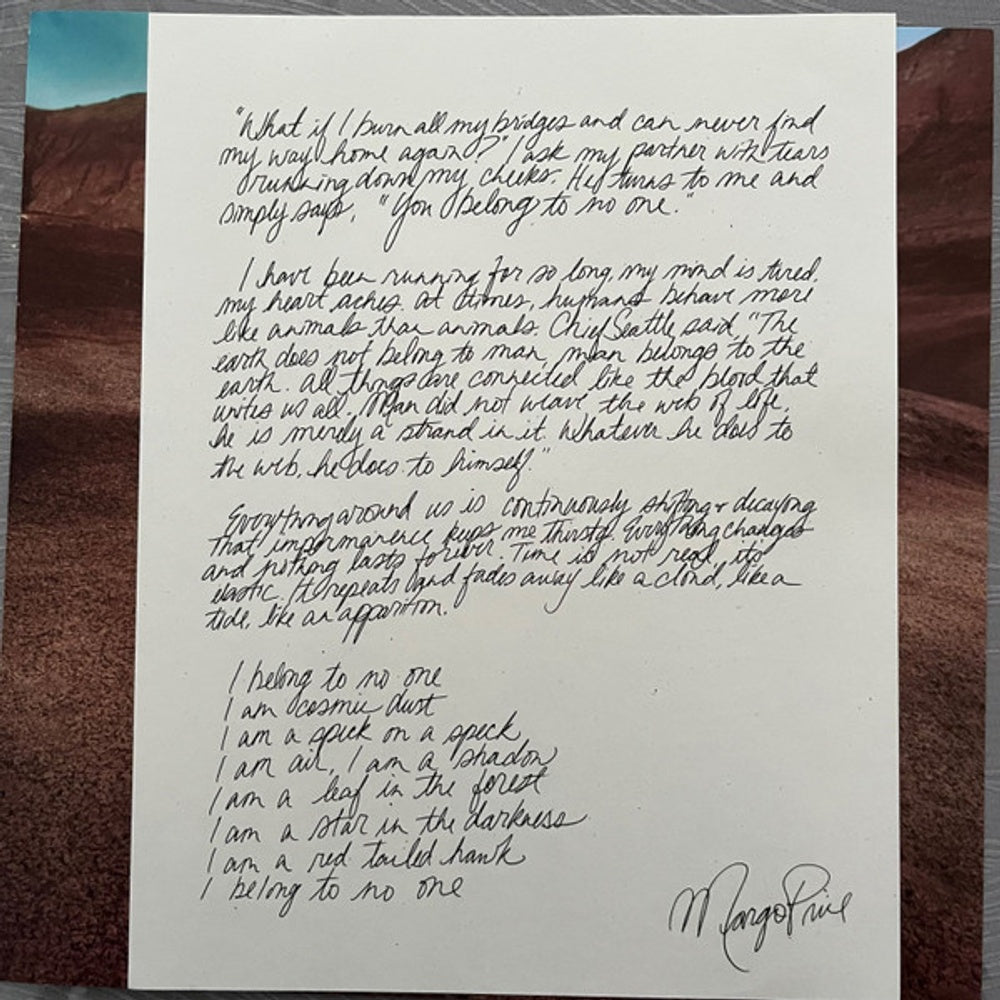 "What if I burn all my bridges and can never find
my way home again?" I ask my partner with tears
running down my cheeks. He turns to me and
simply says, "You belong to no one."
I have been running for so long, my mind is tired,
my heart aches. At times, humans behave more
like animals than animals. Chief Seattle said, "The
earth does not belong to man, man belongs to the
earth. All things are connected like the blood that
unites us all. Man did not weave the web of life,
he is merely a strand in it. Whatever he does to
the web, he does to himself."
Everything around us is continuously shifting + decaying
that impermanence keeps me thirsty. Everything changes
and nothing lasts forever. Time is not real, it's
elastic. It repeats and fades away like a cloud, like a
tide, like an apparition.
I belong to no one
I am cosmic dust
I am a speck on a speck
I am air, I am a shadow
I am a leaf in the forest
I am a star in the darkness
I am a red tailed hawk
I belong to no one
Margo Price